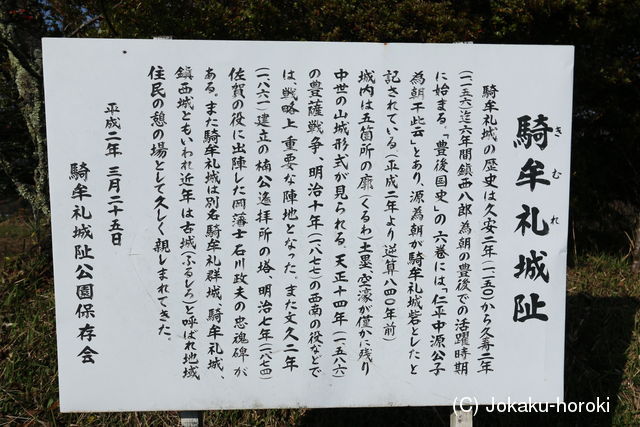 騎牟礼城址
きむれ
騎牟礼城の歴史は久安二年(一一五〇)から久寿二年
(一一五六)迄六年間鎮西八郎為朝の豊後での活躍時期
に始まる。「豊後国史」の六巻には、仁平中源公子
為朝干此云」とあり、源為朝が騎牟礼城砦としたと
記されている。(平成二年より逆算八四〇年前)
城内は五箇所の廓(くるわ)土塁、空濠が僅かに残り
中世の山城形式が見られる。天正十四年(一五八六)
の豊薩戦争、明治十年(一八七七)の西南の役などで
は、戦略上重要な陣地となった。また文久二年
(一八六一)建立の楠公遙拝所の塔、明治七年(一八七四)
佐賀の役に出陣した岡藩士石川政夫の忠魂碑が
ある。また騎牟礼城は別名騎牟礼群城、騎牟礼城、
鎮西城ともいわれ近年は古城(ふるしろ)と呼ばれ地域
住民の憩の場として久しく親しまれてきた。
平成二年 三月二十五日
騎牟礼城址公園保存会
(C) Jokaku-horoki